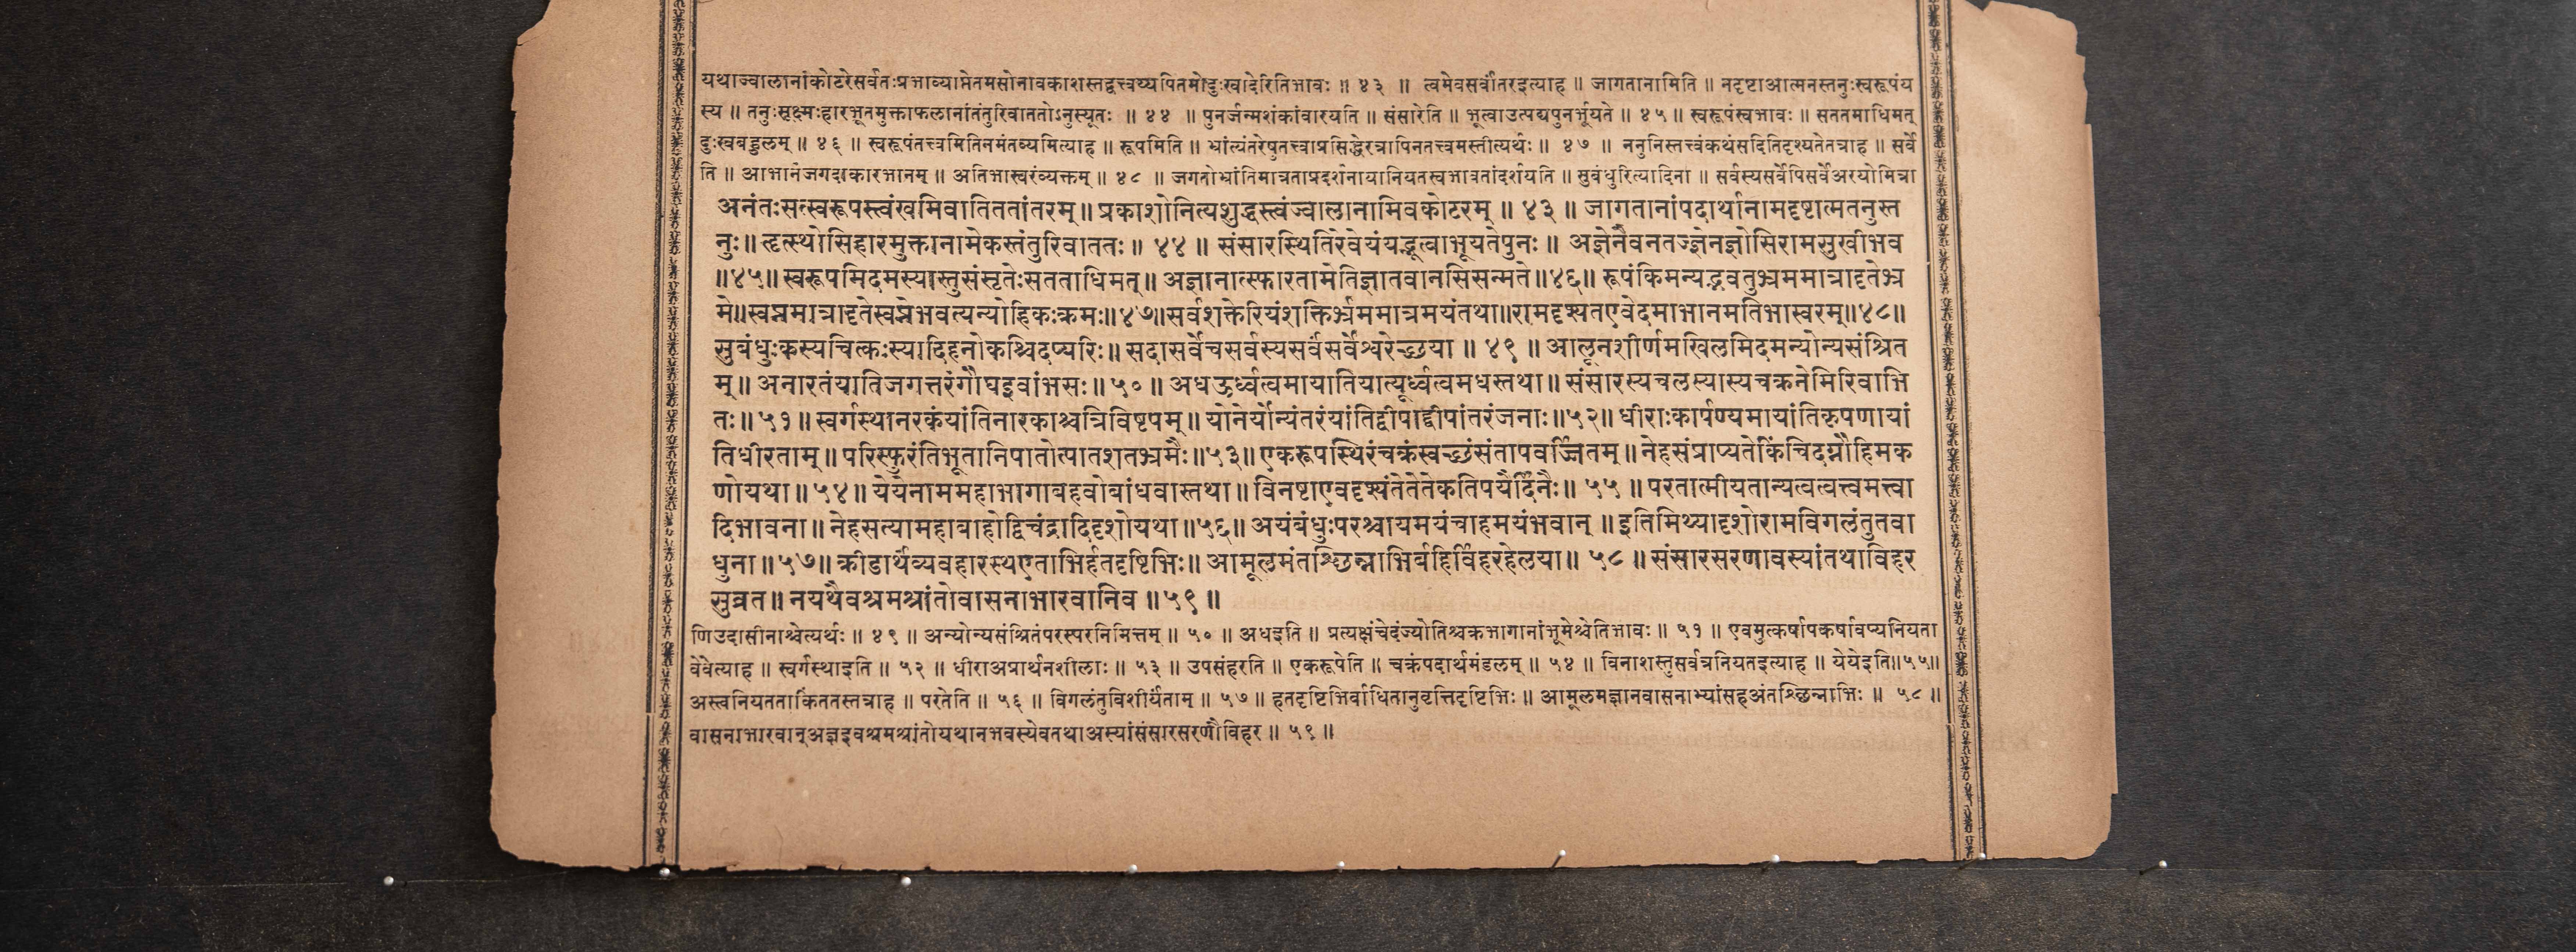 यथाज्वालानांकोटरेसर्वतःप्रभाव्याप्तेतमसोनावकाशस्तद्वत्त्वय्यपितमोदुःखादेरितिभावः ॥ ४३ ॥ त्वमेवसर्वांतरइत्याह ॥ जागतानामिति ॥ नदृष्टाआत्मनस्तनुःस्वरूपंय
स्य ॥ तनुःसूक्ष्मःहारभूतमुक्ताफलानांतंतुरिवाततोऽनुस्यूतः ॥ ४४ ॥ पुनर्जन्मशंकांवारयति ॥ संसारेति ॥ भूत्वाउत्पद्यपुनर्भूयते ॥ ४५ ॥ स्वरूपंस्वभावः ॥ सततमाधिमत्
दुःखबहुलम् ॥ ४६ ॥ स्वरूपंतत्त्वमितिनमंतव्यमित्याह ॥ रूपमिति ॥ भ्रांत्यंतरेषुतत्त्वाप्रसिद्धेरत्रापिनतत्त्वमस्तीत्यर्थः ॥ ४७ ॥ ननुनिस्तत्त्वंकथंसदितिदृश्यतेतत्राह ॥ सर्वे
ति ॥ आभानंजगदाकारभानम् ॥ अतिभास्वरंव्यक्तम् ॥ ४८ ॥ जगतोभ्रांतिमात्रताप्रदर्शनायानियतस्वभावतांदर्शयति ॥ सुबंधुरित्यादिना ॥ सर्वस्यसर्वेपिसर्वेअरयोमित्रा
अनंतःसत्स्वरूपस्त्वंखमिवातिततांतरम् ॥ प्रकाशोनित्यशुद्धस्त्वंज्वालानामिवकोटरम् ॥ ४३ ॥ जागतानांपदार्थानामदृष्टात्मतनुस्त
नुः ॥ त्हृत्स्थोसिहारमुक्तानामेकस्तंतुरिवाततः ॥ ४४ ॥ संसारस्थितिरेवेयंयद्भूत्वाभूयतेपुनः ॥ अज्ञेनैवनतज्ज्ञेनज्ञोसिरामसुखीभव
॥४५॥ स्वरूपमिदमस्यास्तुसंसृतेःसतताधिमत् ॥ अज्ञानात्स्फारतामेतिज्ञातवानसिसन्मते ॥४६॥ रूपंकिमन्यद्भवतुभ्रममात्रादृतेभ्र
मे॥स्वप्नमात्रादृतेस्वप्नेभवत्यन्योहिकःक्रमः॥४७॥सर्वशक्तेरियंशक्तिर्भ्रममात्रमयंतथा॥रामदृश्यतएवेदमाभानमतिभास्वरम्॥४८॥
सुबंधुःकस्यचित्कःस्यादिहनोकश्चिदप्यरिः ॥ सदासर्वेचसर्वस्यसर्वसर्वेश्वरेच्छया ॥ ४९ ॥ आलूनशीर्णमखिलमिदमन्योन्यसंश्रित
म् ॥ अनारतंयातिजगत्तरंगौघइवांभसः ॥ ५० ॥ अधऊर्ध्वत्वमायातियात्यूर्ध्वत्वमधस्तथा ॥ संसारस्यचलस्यास्यचक्रनेमिरिवाभि
तः ॥ ५१ ॥ स्वर्गस्थानरकंयांतिनारकाश्चत्रिविष्टपम् ॥ योनेर्योन्यंतरंयांतिद्वीपाद्वीपांतरंजनाः ॥५२॥ धीराःकार्पण्यमायांतिकृपणायां
तिधीरताम् ॥ परिस्फुरंतिभूतानिपातोत्पातशतभ्रमैः ॥५३॥ एकरूपस्थिरंचक्रंस्वच्छंसंतापवर्जितम् ॥ नेहसंप्राप्यतेकिंचिदग्नौहिमक
णोयथा ॥ ५४ ॥ येयेनाममहाभागाबहवोबांधवास्तथा ॥ विनष्टाएवदृश्यंतेतेतेकतिपयैर्दिनैः ॥ ५५ ॥ परतात्मीयतान्यत्वत्वत्त्वमत्त्वा
दिभावना ॥ नेहसत्यामहाबाहोद्विचंद्रादिदृशोयथा ॥५६॥ अयंबंधुःपरश्चायमयंचाहमयंभवान् ॥ इतिमिथ्यादृशोरामविगलंतुतवा
धुना ॥ ५७॥ क्रीडार्थंव्यवहारस्थएताभिर्हतदृष्टिभिः ॥ आमूलमंतश्छिन्नाभिर्बहिर्विहरहेलया ॥ ५८ ॥ संसारसरणावस्यांतथाविहर
सुव्रत ॥ नयथैवश्रमश्रांतोवासनाभारवानिव ॥ ५९ ॥
णिउदासीनाश्चेत्यर्थः ॥ ४९ ॥ अन्योन्यसंश्रितंपरस्परनिमित्तम् ॥ ५० ॥ अधइति ॥ प्रत्यक्षंचेदंज्योतिश्चक्रभागानांभूमेश्चेतिभावः ॥ ५१ ॥ एवमुत्कर्षापकर्षावप्यनियता
वेवेत्याह ॥ स्वर्गस्थाइति ॥ ५२ ॥ धीराअप्रार्थनशीलाः ॥ ५३ ॥ उपसंहरति ॥ एकरूपेति ॥ चक्रंपदार्थमंडलम् ॥ ५४ ॥ विनाशस्तुसर्वत्रनियतइत्याह ॥ येयेइति॥५५॥
अस्त्वनियतताकिंततस्तत्राह ॥ परतेति ॥ ५६ ॥ विगलंतुविशीर्यंताम् ॥ ५७ ॥ हतदृष्टिभिर्बाधितानुवृत्तिदृष्टिभिः ॥ आमूलमज्ञानवासनाभ्यांसहअंतश्छिन्नाभिः ॥ ५८ ॥
वासनाभारवान्अज्ञइवश्रमश्रांतोयथानभवस्येवतथाअस्यांसंसारसरणौविहर ॥ ५९ ॥